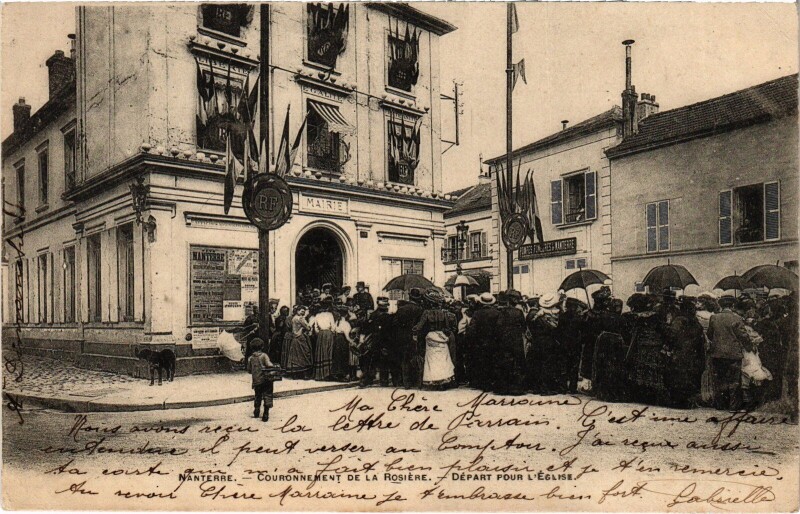 MAIRIE
RF
NANTERRE
POMPES FUNÈBRES DE NANTERRE
Ma Chère Marraine
Nous avons reçu la lettre de Perrain. C'est une affaire
entendue il peut verser au Comptoir. J'ai reçu aussi
ta carte qui m'a fait bien plaisir et je t'en remercie,
NANTERRE. — COURONNEMENT DE LA ROSIÈRE. — DÉPART POUR L'ÉGLISE.
Au revoir Chère Marraine je t'embrasse bien fort. Gabrielle